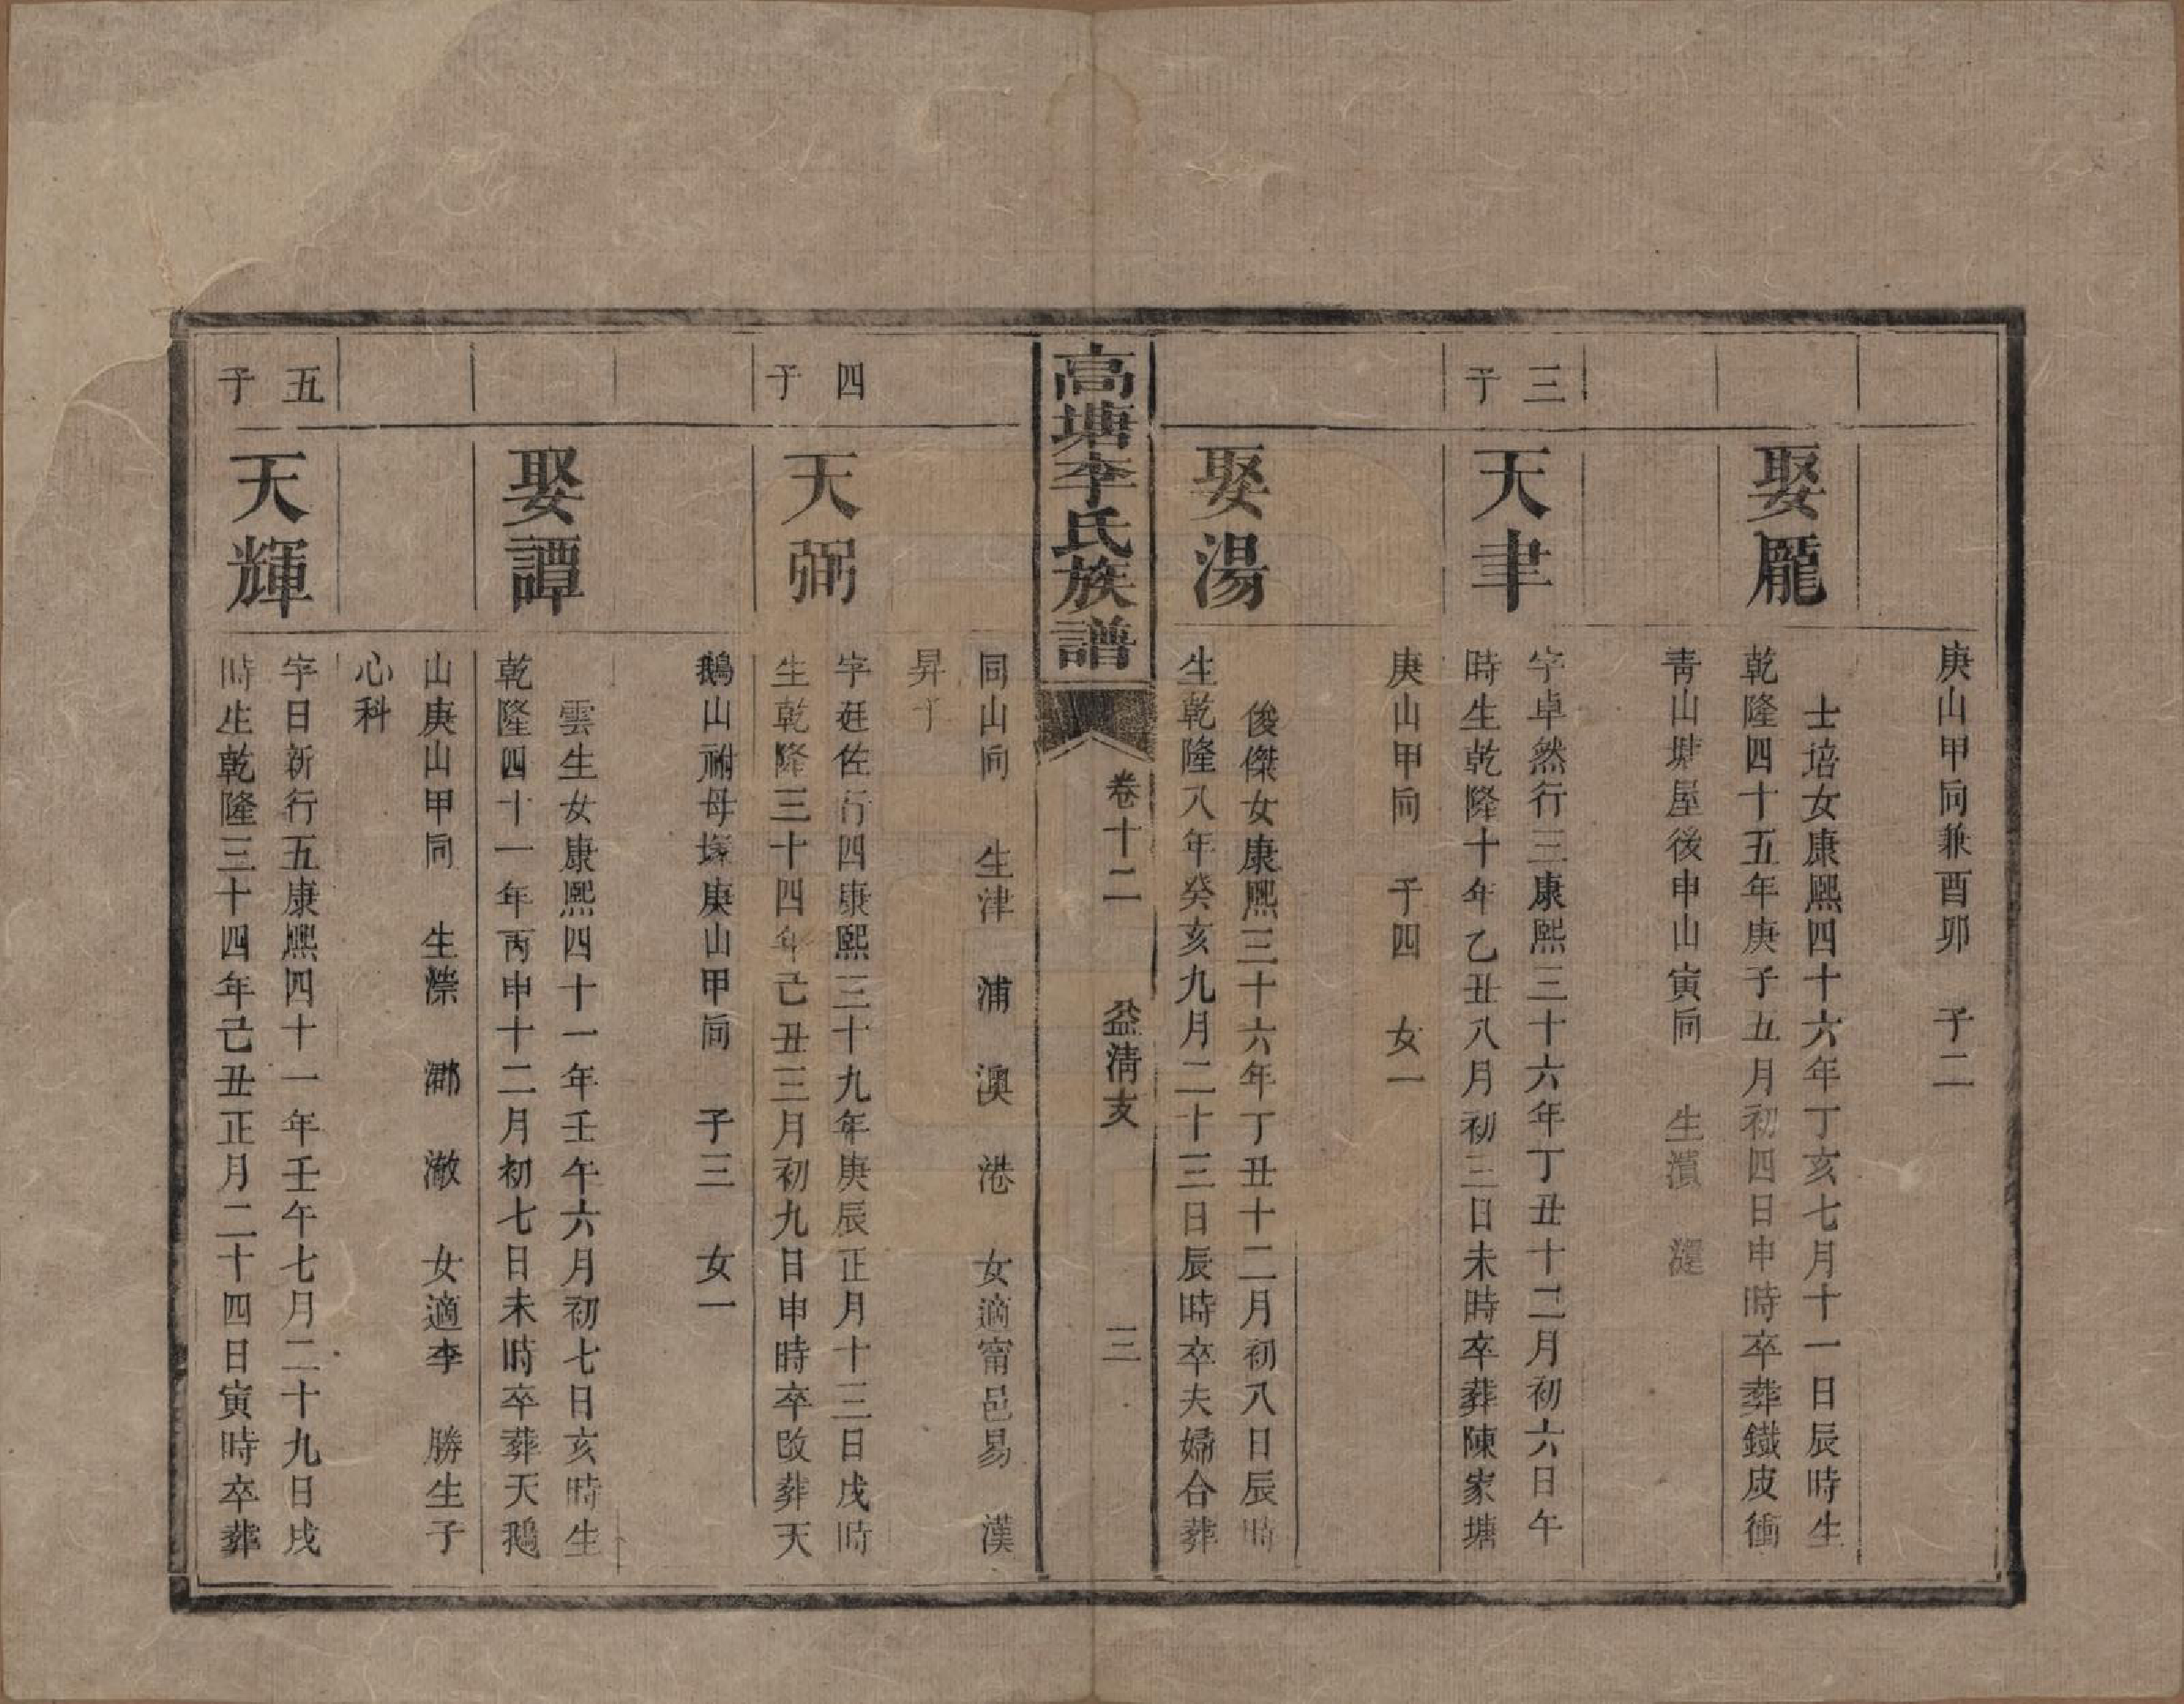 庚山甲向兼酉卯　子二
娶龎
士培女康熈四十六年丁亥七月十一日辰時生
乾隆四十五年庚子五月初四日申時卒葬鐵皮衝
靑山塘屋後申山寅向　生濆　湜
三子
天聿
字卓然行三康熈三十六年丁丑十二月初六日午
時生乾隆十年乙丑八月初三日未時卒葬陳家塘
庚山甲向　子四　女一
娶湯
俊傑女康熈三十六年丁丑十二月初八日辰時
生乾隆八年癸亥九月二十三日辰時卒夫婦合葬
高塘李氏族譜
卷十二
益淸支
三
同山向　生津　浦　澳　港　女適甯邑易　漢
昇子
四子
天弼
字廷佐行四康熈三十九年庚辰正月十三日戌時
生乾隆三十四年己丑三月初九日申時卒改葬天
鵝山祔母塚庚山甲向　子三　女一
娶譚
雲生女康熈四十一年壬午六月初七日亥時生
乾隆四十一年丙申十二月初七日未時卒葬天鵝
山庚山甲向　生濴　澥　澈　女適李　勝生子
心科
五子
天輝
字日新行五康熈四十一年壬午七月二十九日戌
時生乾隆三十四年己丑正月二十四日寅時卒葬